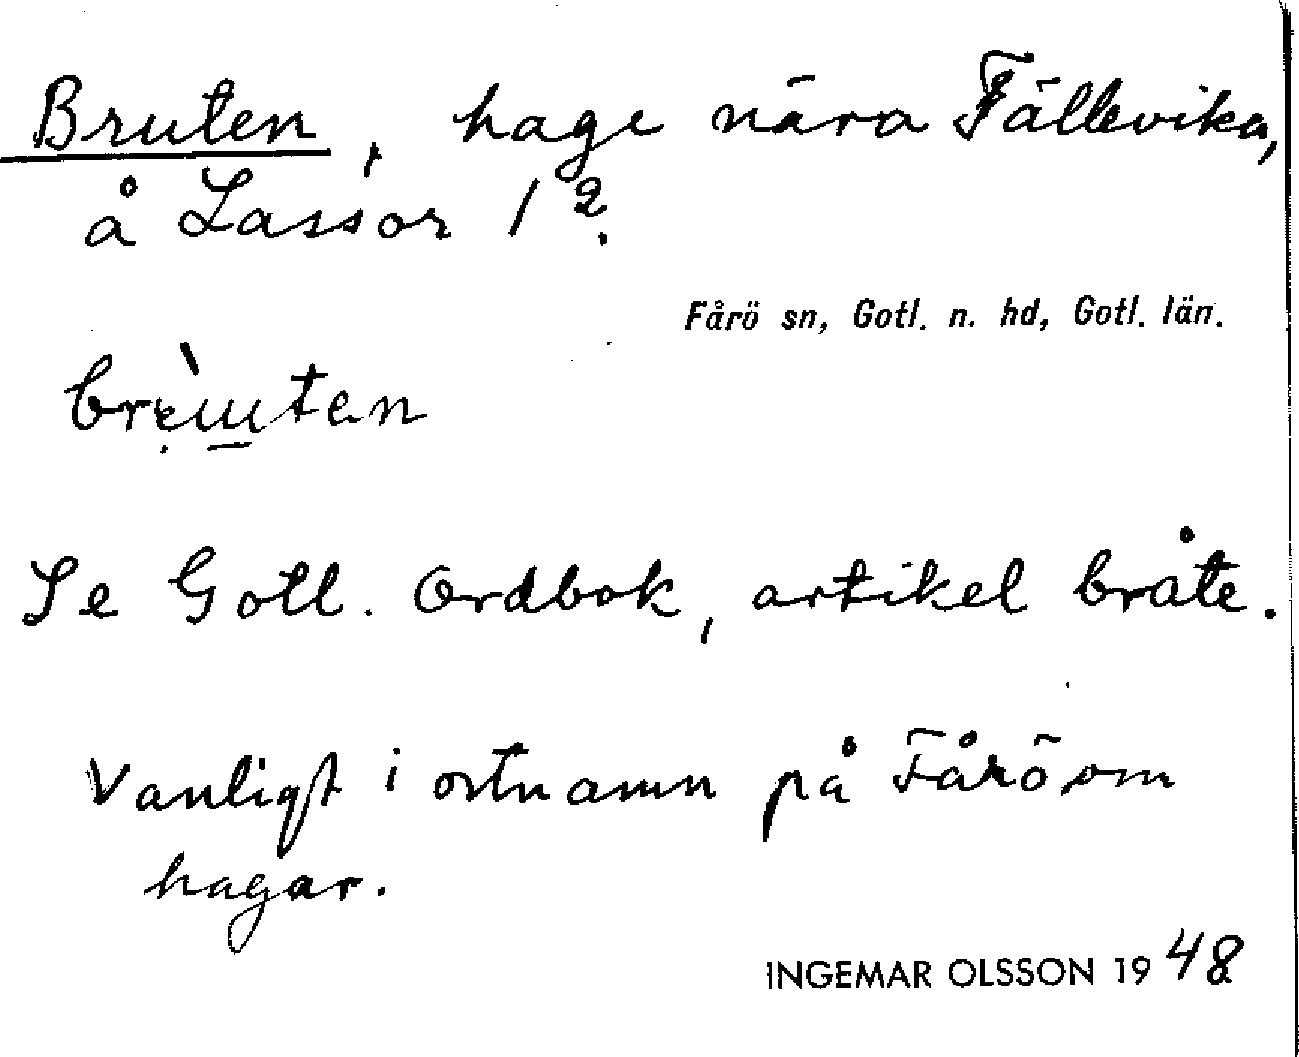 Bruten, hage nära Fällevika,
å Lassor 1².
Fårö sn, Gotl. n. hd, Gotl. län.
Se Gotl. Ordbok, artikel bråte.
Vanligt i ortnamn på Fårö om
hagar.
INGEMAR OLSSON 1948